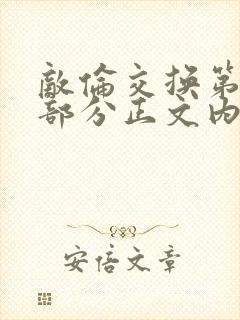 敵倫交換第
部分正文内
安倍文章